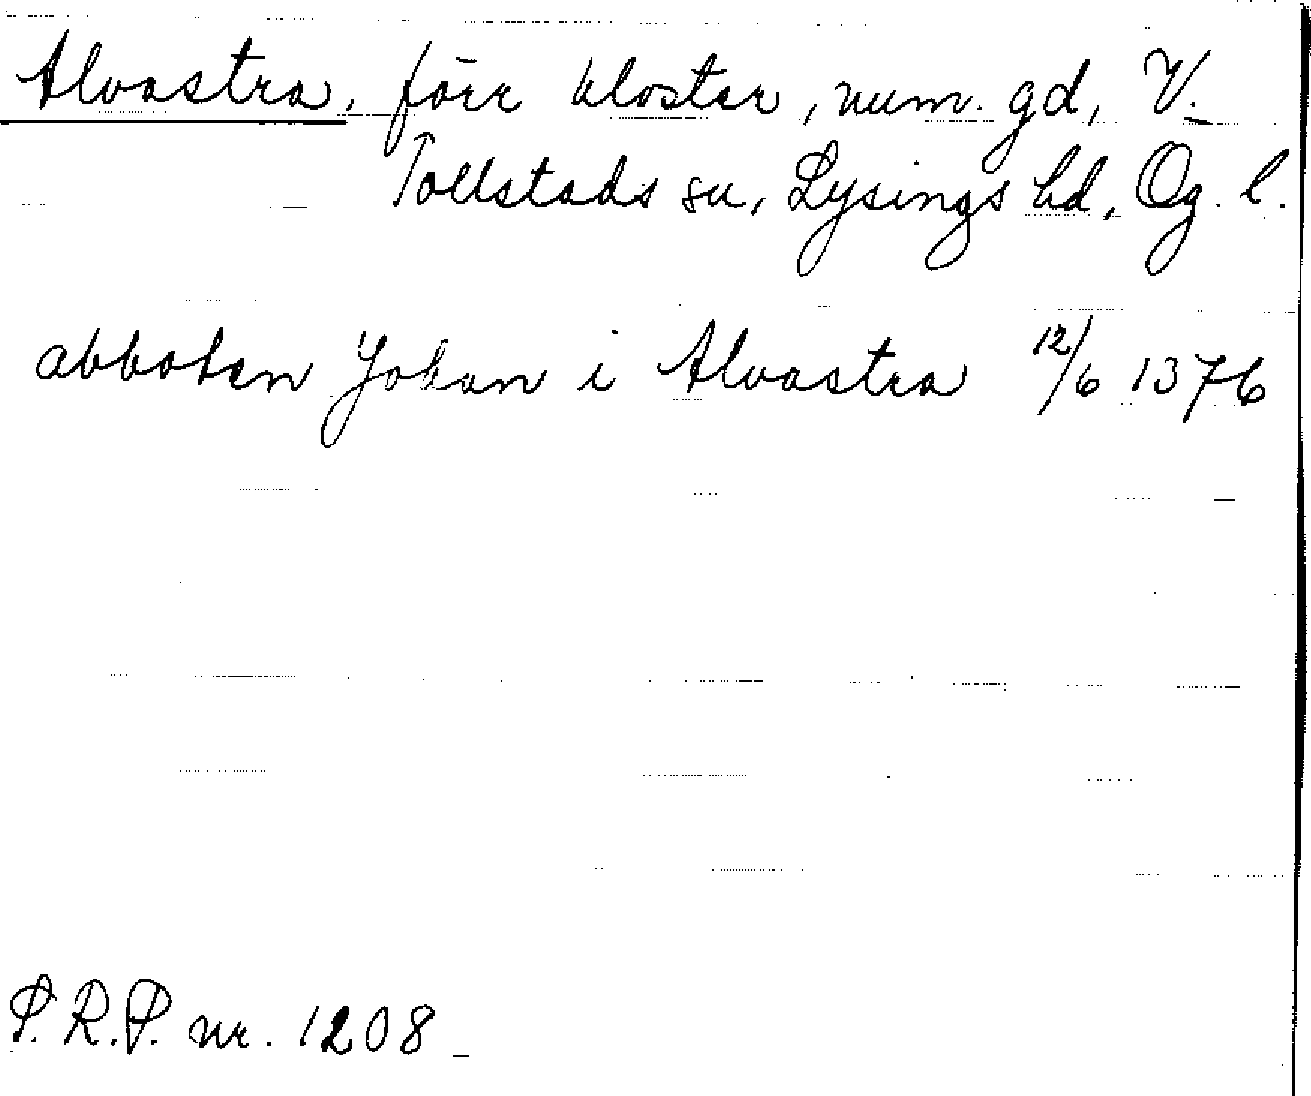 Alvastra, förr kloster, num. gd, V.
Tollstads sn, Lysings hd, Ög. l.
abboten Johan i Alvastra 12/6 1376
P.R.P. nr. 1208